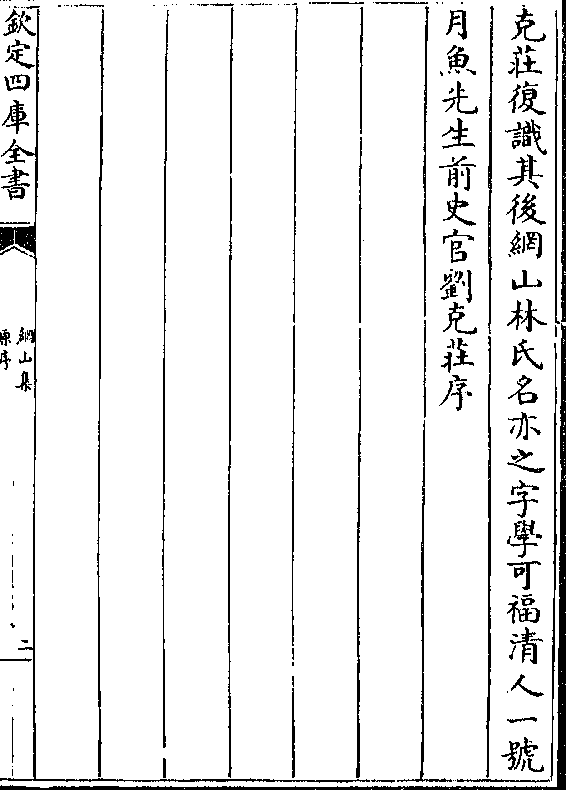 克莊復識其後網山林氏名亦之字學可福清人一號
月魚先生前史官劉克莊序
欽定四庫全書
網山集
原序
二